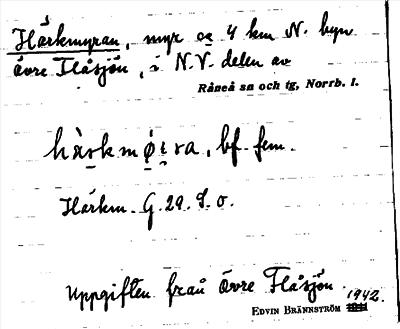 Härkmyran, myr ca 4 km N. byn
Övre Flåsjön, i N.V. delen av
Råneå sn och tg, Norrb. l.
härkmǿi̯ra, bf. fem.
Härkm. G. 29. S. o.
Uppgiften från Övre Flåsjön 1942.
EDVIN BRÄNNSTRÖM